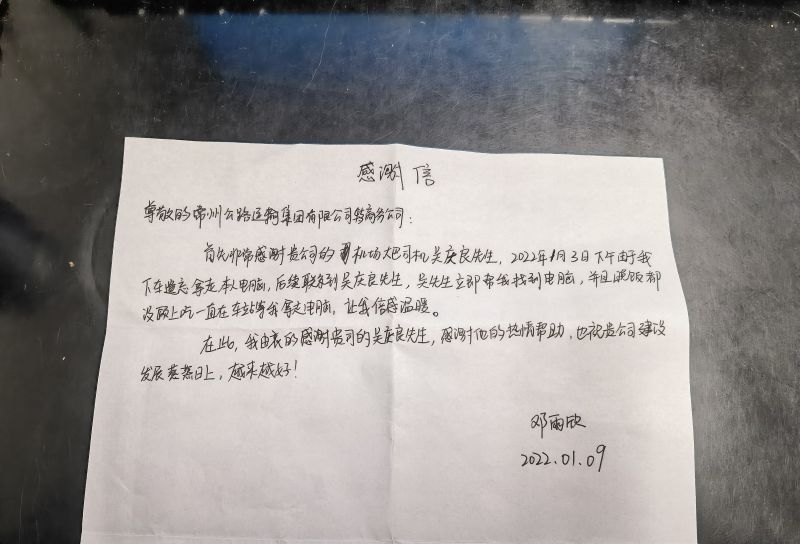 感谢信
尊敬的常州公路运输集团有限公司转商务公司:
首先非常感谢贵公司的机场大巴司机吴庆良先生,2022年1月3日下午由于我
下车遗忘拿走本人电脑,后续联系到吴庆良先生,吴先生立即帮我找到电脑,并且晚饭都
没顾上吃一直在车站等我拿走电脑,让我倍感温暖。
在此,我由衷的感谢贵司的吴庆良先生,感谢他的热情帮助,也祝贵公司建设
发展蒸蒸日上,越来越好!
邓雨欣
2022.01.09